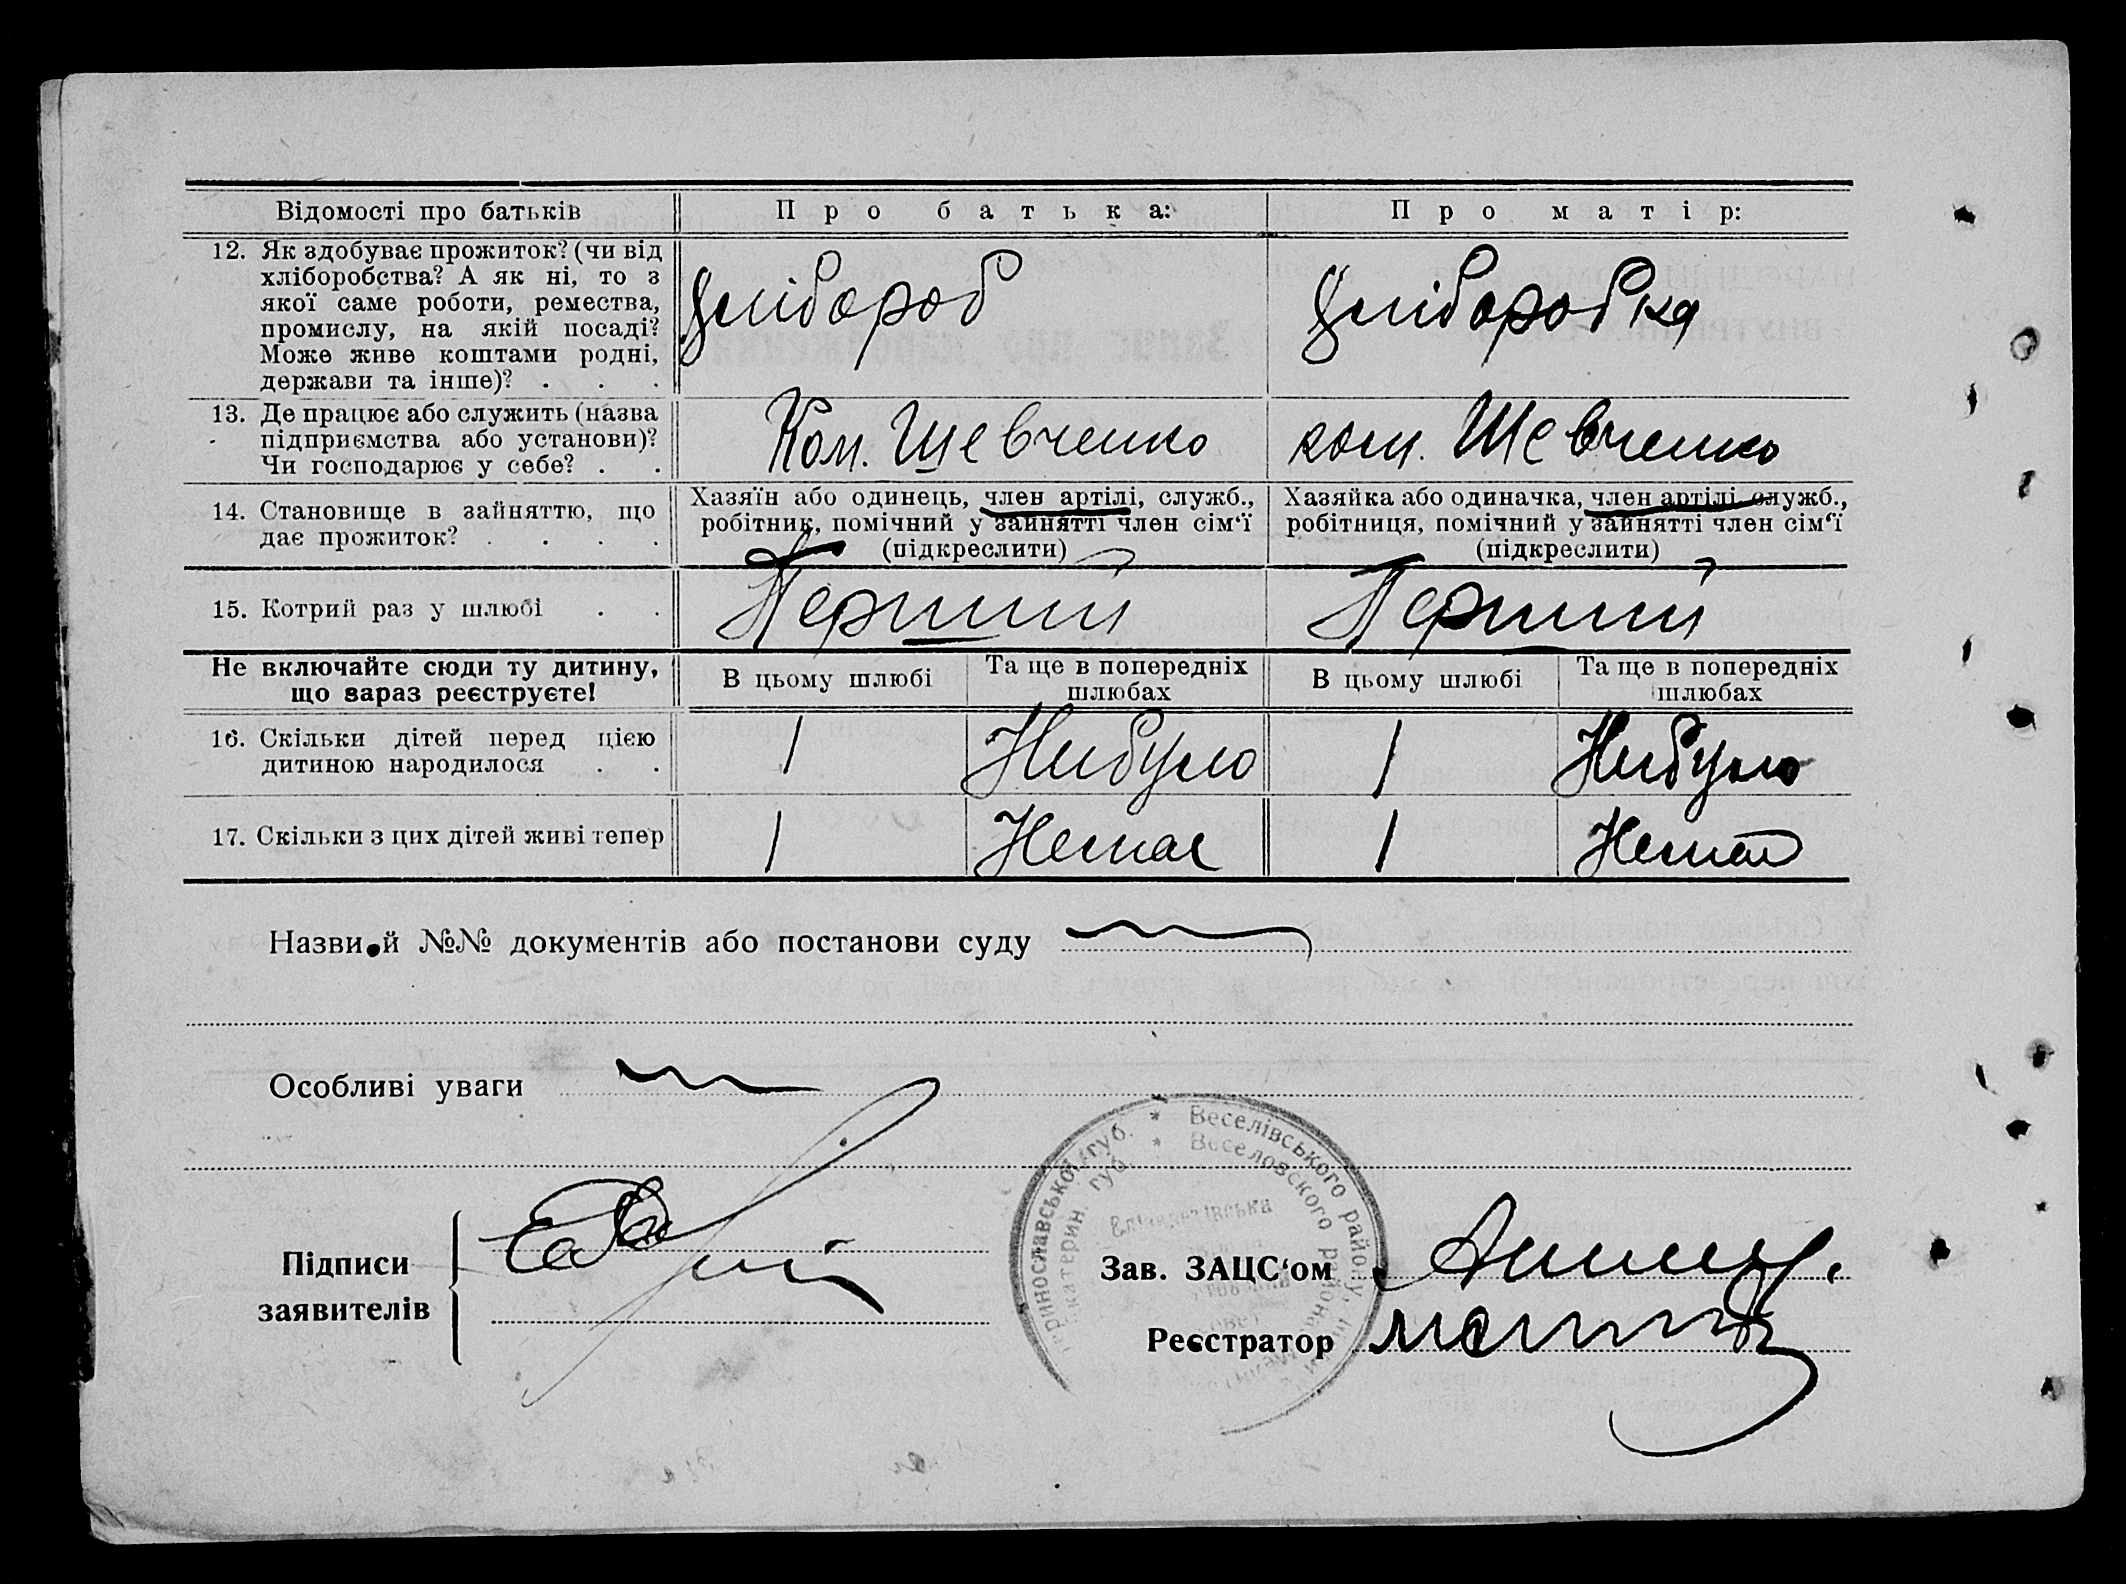 Відомості про батьків
Про батька:
Про матір:
12. Як здобуває прожиток? (чи від
хліборобства? А як ні, то з
якої саме роботи, ремества,
промислу, на якій посаді?
Може живе коштами родні,
держави та інше)? . . .
Хлібороб
Хлібороб ка
13. Де працює або служить (назва
підприємства або установи)?
Чи господарює у себе? . .
Ком. Шевченко
ком. Шевченко
14. Становище в зайняттю, що
дає прожиток? . . . .
Хазяїн або одинець, член артілі, служб.,
робітник, помічний у зайнятті член сім‘ї
(підкреслити)
Хазяйка або одиначка, член артілі служб.,
робітниця, помічний у зайнятті член сім‘ї
(підкреслити)
15. Котрий раз у шлюбі . .
Перший
Перший
Не включайте сюди ту дитину,
що зараз реєструєте!
В цьому шлюбі
Та ще в попередніх
шлюбах
В цьому шлюбі
Та ще в попередніх
шлюбах
16. Скільки дітей перед цією
дитиною народилося . .
1
Нибуло
1
Нибуло
17. Скільки з цих дітей живі тепер
1
Немає
1
Немає
Назви й №№ документів або постанови суду
Особливі уваги
Підписи
заявителів
Зав. ЗАЦС‘ом
Реєстратор
губ. * Веселівського району,
губ. * Веселовского